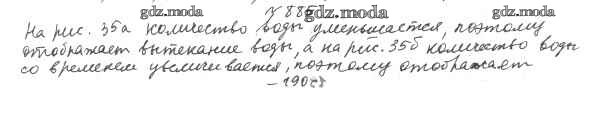 № 885
gdz.moda gdz.moda gdz.moda
На рис. 35а количество воды уменьшается, поэтому
отображает вытекание воды, а на рис. 35б количество воды
со временем увеличивается, поэтому отображает
gdz.moda gdz.moda